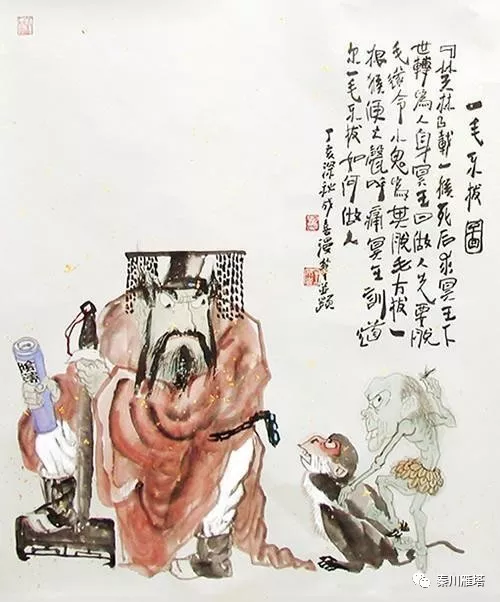 一毛不拔圖
『笑林』載一猴死后求冥王下
世轉為人身冥王曰做人先要脱
毛遂令小鬼為其脱毛方拔一
根猴便大聲呼痛冥王訓道
尔一毛不拔如何做人
丁亥深秋成喜漫筆並題
秦川雁塔